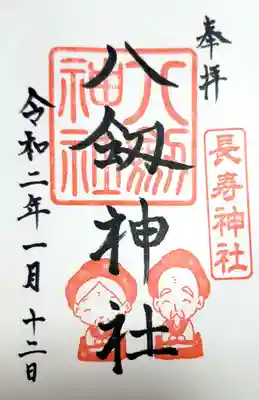 奉拝
長寿神社
八剱神社
八剱神社
令和二年一月十二日